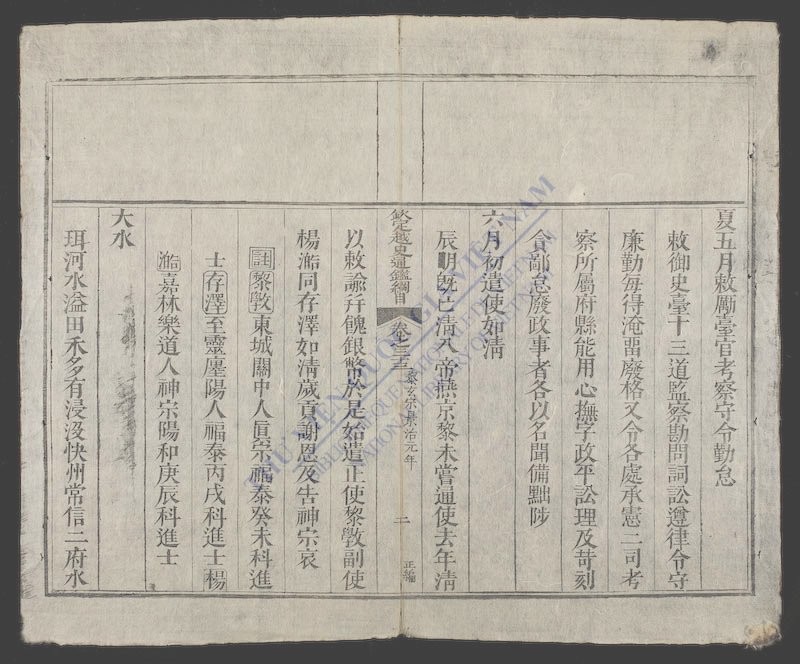 夏五月敕勵臺官考察守令勤怠
敕御史臺十三道監察勘問詞訟遵律令守
廉勤毎得淹畱廢格又令各處承憲二司考
察所屬府縣能用心撫字政平訟理及苛刻
貪鄙怠廢政事者各以名聞備黜陟
六月初遣使如清
辰明旣亡清入帝燕京黎未嘗通使去年清
欽定越史通鑑綱目
卷之三十三
黎玄宗景治元年
二
正編
以敕諭幷餽銀幣於是始遣正使黎斆副使
楊澔同存澤如清歲貢謝恩及告神宗哀
註黎斆東城關中人眞宗福泰癸未科進
士存澤至靈㕓陽人福泰丙戌科進士楊
澔嘉林樂道人神宗陽和庚辰科進士
大水
珥河水溢田禾多有浸沒快州常信二府水
THƯ VIỆN QUỐC GIA VIỆT NAM
NATIONAL LIBRARY OF VIETNAM